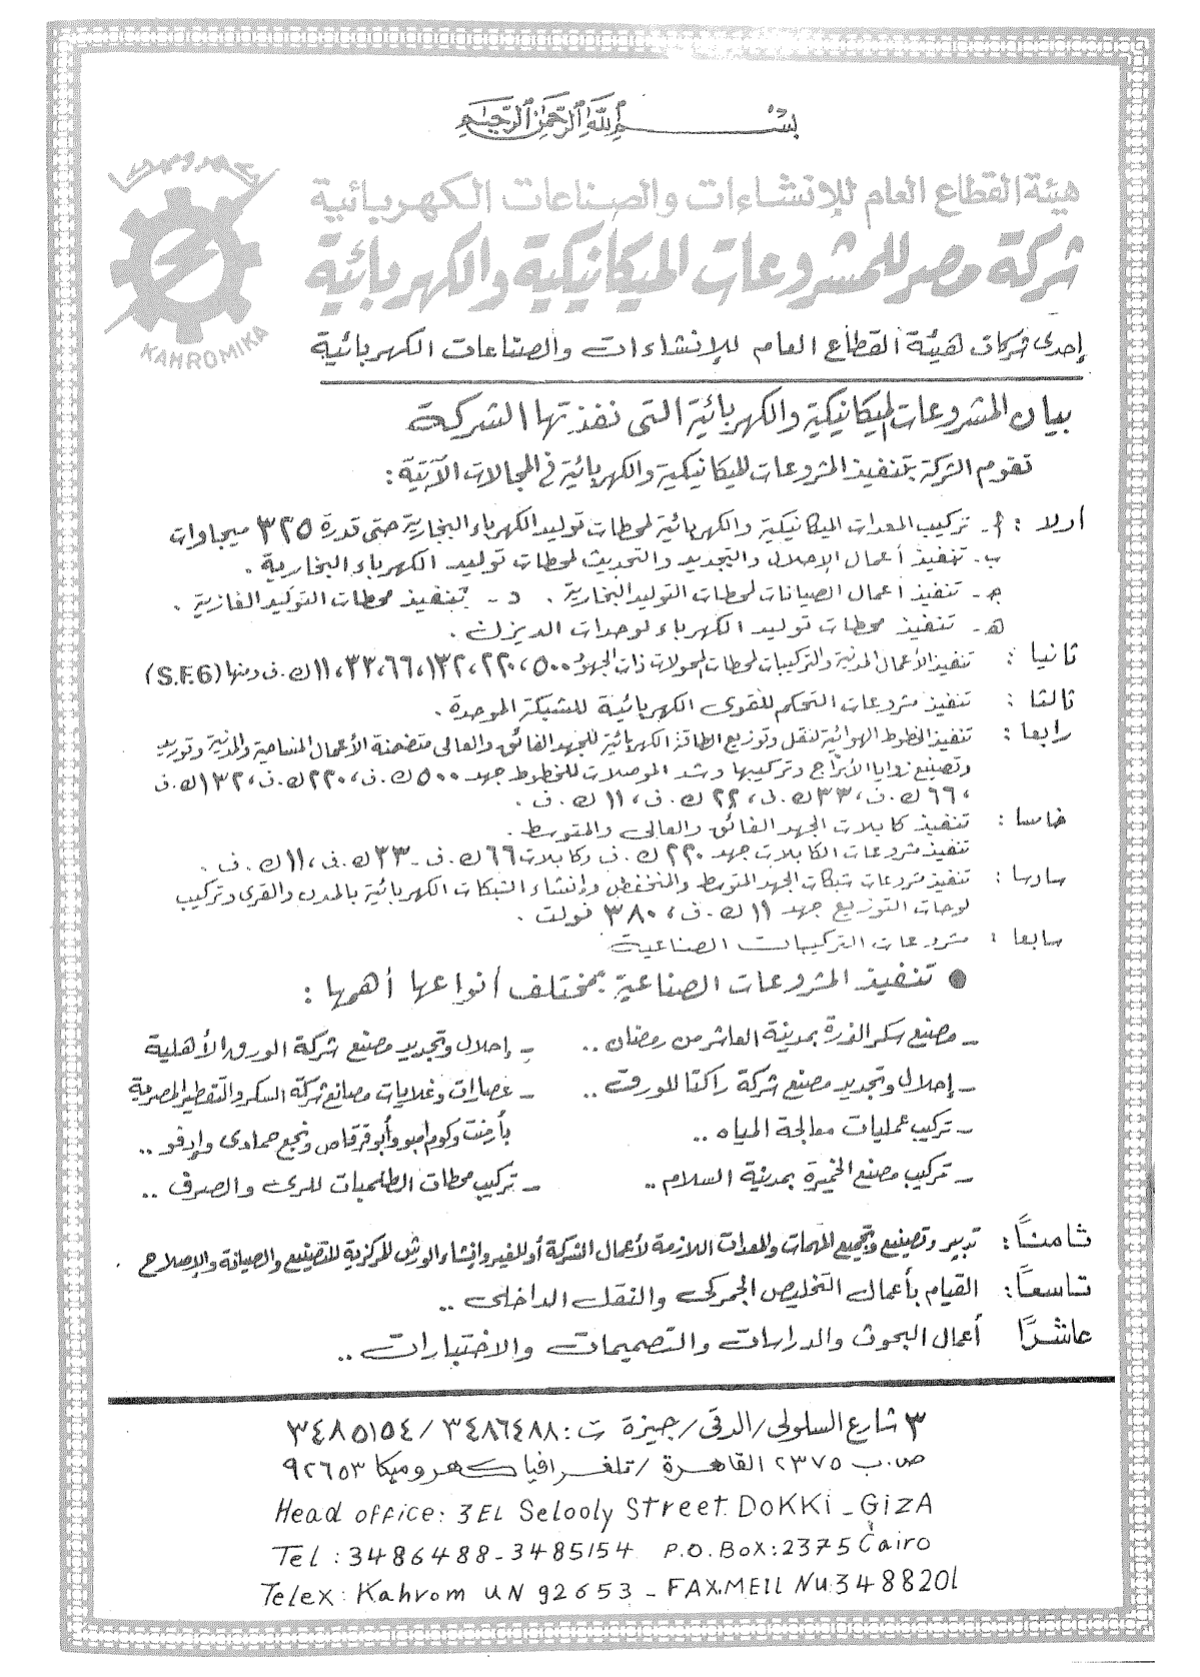 بسم الله الرحمن الرحيم
كهروميكا
KAHROMIKA
هيئة القطاع العام للإنشاءات والصناعات الكهربائية
شركة مصر للمشروعات الميكانيكية والكهربائية
إحدى شركات هيئة القطاع العام للإنشاءات والصناعات الكهربائية
بيان المشروعات الميكانيكية والكهربائية التى نفذتها الشركة
تقوم الشركة بتنفيذ المشروعات الميكانيكية والكهربائية فى المجالات الآتية :
أولا : أ - تركيب المعدات الميكانيكية والكهربائية لمحطات توليد الكهرباء البخارية حتى قدرة ٣٢٥ ميجاوات
ب - تنفيذ أعمال الإحلال والتجديد والتحديث لمحطات توليد الكهرباء البخارية .
جـ - تنفيذ أعمال الصيانات لمحطات التوليد البخارية . د - تنفيذ محطات التوليد الغازية .
هـ - تنفيذ محطات توليد الكهرباء لوحدات الديزل .
ثانيا : تنفيذ الأعمال المدنية والتركيبات لمحطات المحولات ذات الجهود ٥٠٠، ٢٢٠، ١٣٢، ٦٦، ٣٣، ١١ ك.ف ومنها (S.F.6)
ثالثا : تنفيذ مشروعات التحكم للقوى الكهربائية للشبكة الموحدة .
رابعا : تنفيذ الخطوط الهوائية لنقل وتوزيع الطاقة الكهربائية للجهد الفائق والعالى متضمنة الأعمال المساحية والمدنية وتوريد
وتصنيع زوايا الأبراج وتركيبها وشد الموصلات للخطوط جهد ٥٠٠ ك.ف، ٢٢٠ ك.ف، ١٣٢ ك.ف
، ٦٦ ك.ف، ٣٣ ك.ف، ٢٢ ك.ف، ١١ ك.ف .
خامسا : تنفيذ كابلات الجهد الفائق والعالى والمتوسط .
تنفيذ مشروعات الكابلات جهد ٢٢٠ ك.ف وكابلات ٦٦ ك.ف - ٣٣ ك.ف، ١١ ك.ف .
سادسا : تنفيذ مشروعات شبكات الجهد المتوسط والمنخفض وإنشاء الشبكات الكهربائية بالمدن والقرى وتركيب
لوحات التوزيع جهد ١١ ك.ف، ٣٨٠ فولت .
سابعا : مشروعات التركيبات الصناعية
● تنفيذ المشروعات الصناعية بمختلف أنواعها أهمها :
- مصنع سكر الذرة بمدينة العاشر من رمضان .. - إحلال وتجديد مصنع شركة الورق الأهلية
- إحلال وتجديد مصنع شركة راكتا للورق .. - عصارات وغلايات مصانع شركة السكر والتقطير المصرية
- تركيب عمليات معالجة المياه .. بأرمنت وكوم امبو وأبو قرقاص ونجع حمادى وإدفو ..
- تركيب مصنع الخميرة بمدينة السلام .. - تركيب محطات الطلمبات للرى والصرف ..
ثامنًا : تدبير وتصنيع وتجميع المهمات والمعدات اللازمة لأعمال الشركة أو للغير وإنشاء الورش المركزية للتصنيع والصيانة والإصلاح .
تاسعًا : القيام بأعمال التخليص الجمركى والنقل الداخلى ..
عاشرًا أعمال البحوث والدراسات والتصميمات والاختبارات ..
٣ شارع السلولى / الدقى / جيزة ت : ٣٤٨٦٤٨٨ / ٣٤٨٥١٥٤
ص.ب ٢٣٧٥ القاهرة / تلغرافيا كهروميكا ٩٢٦٥٣
Head office: 3 EL Selooly Street. DoKKi - GizA
Tel : 3486488 - 3485154 P.O. BoX : 2375 Cairo
Telex : Kahrom UN 92653 - FAX.MEIL Nu 3488201